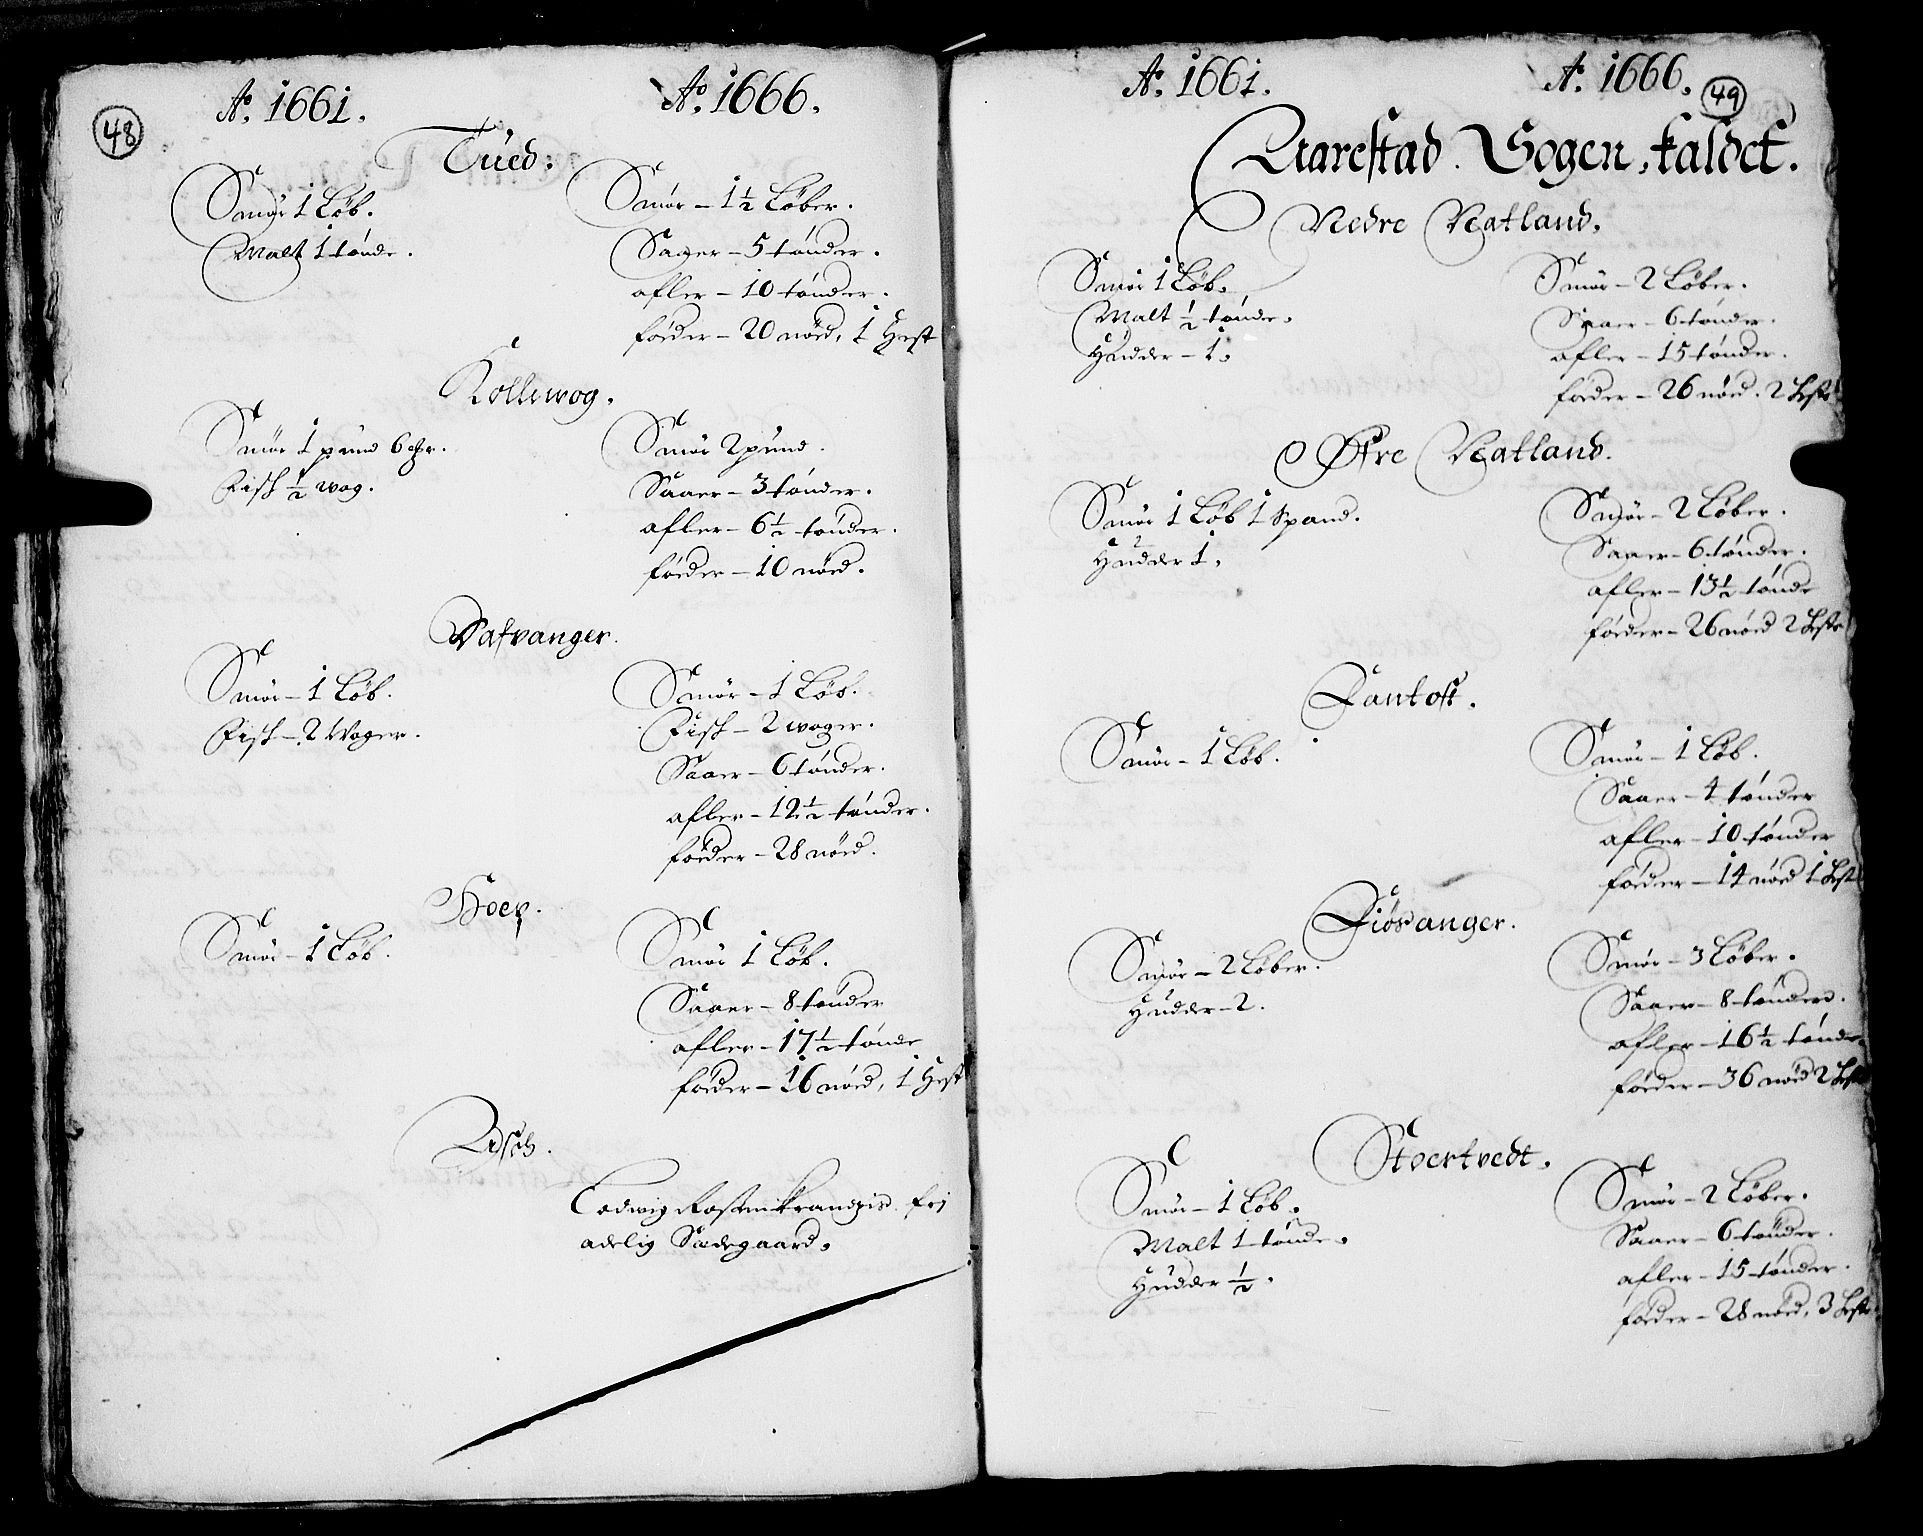 48
Aº. 1661.
Aº. 1666.
Tüed.
Smör 1 Löb.
Malt 1 tönde.
Smör – 1½ Löber.
Saaer – 5 tönder.
afler – 10 tönder.
föder – 20 nöed, 1 Hest
Kollewog.
Smör 1 pund 6
Fisk ½ wog.
Smör 2 pund.
Saaer – 3 tönder.
afler – 6½ tönder.
föder – 10 nöed.
Vatvanger.
Smör – 1 Löb.
Fisk – 2 Woger.
Smör – 1 Löb.
Fisk – 2 woger.
Saaer – 6 tönder.
afler – 12½ tönder.
föder – 28 nöed.
Hoep.
Smör – 1 Löb.
Smör 1 Löb.
Saaer – 8 tönder
afler – 17½ tönde
föder – 26 nöed, 1 Hest
Lodwig Rosenkrandzis. fri
adelig Sædegaard.
49
Aº. 1661.
Aº. 1666.
Aarestad Sogen, kaldet.
Nedre Natland.
Smör 1 Löb.
Malt ½ tönde.
Hüdder – 1.
Smör – 2 Löber.
Saaer – 6 tönder.
afler – 15 tönder.
föder – 26 nöed. 2 Heste
Øfre Natland.
Smör 1 Löb 1 Spand.
Hüdder 1.
Smör – 2 Löber.
Saaer – 6 tönder.
afler – 13½ tönde
föder – 26 nöed 2 Heste
Fantoft.
Smör – 1 Löb.
Smör – 1 Löb.
Saaer – 4 tönder
afler – 10 tönder
föder – 14 nöed 1 Hest
Fiösanger.
Smör – 2 Löber.
Hüdder – 2.
Smör – 3 Löber.
Saaer – 8 tönder.
afler – 16½ tönde
föder – 36 nöed 2 Heste
Stoertvedt.
Smör – 1 Löb.
Malt 1 tönde.
Hüdder ½.
Smör – 2 Löber.
Saaer – 6 tönder.
afler – 15 tönder.
föder – 28 nöed, 3 Heste